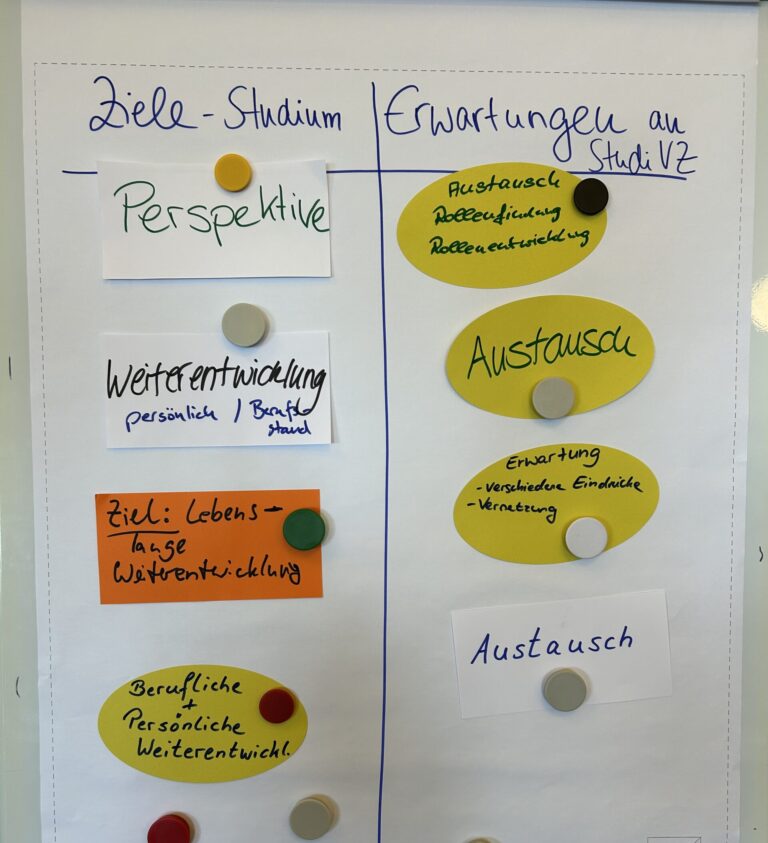 Ziele - Studium
Perspektive
Weiterentwicklung
persönlich / Berufs-
stand
Ziel: Lebens-
lange
Weiterentwicklung
Berufliche
+
Persönliche
Weiterentwickl.
Erwartungen an
StudiVZ
Austausch
Rollenfindung
Rollenentwicklung
Austausch
Erwartung
- verschiedene Eindrücke
- Vernetzung
Austausch